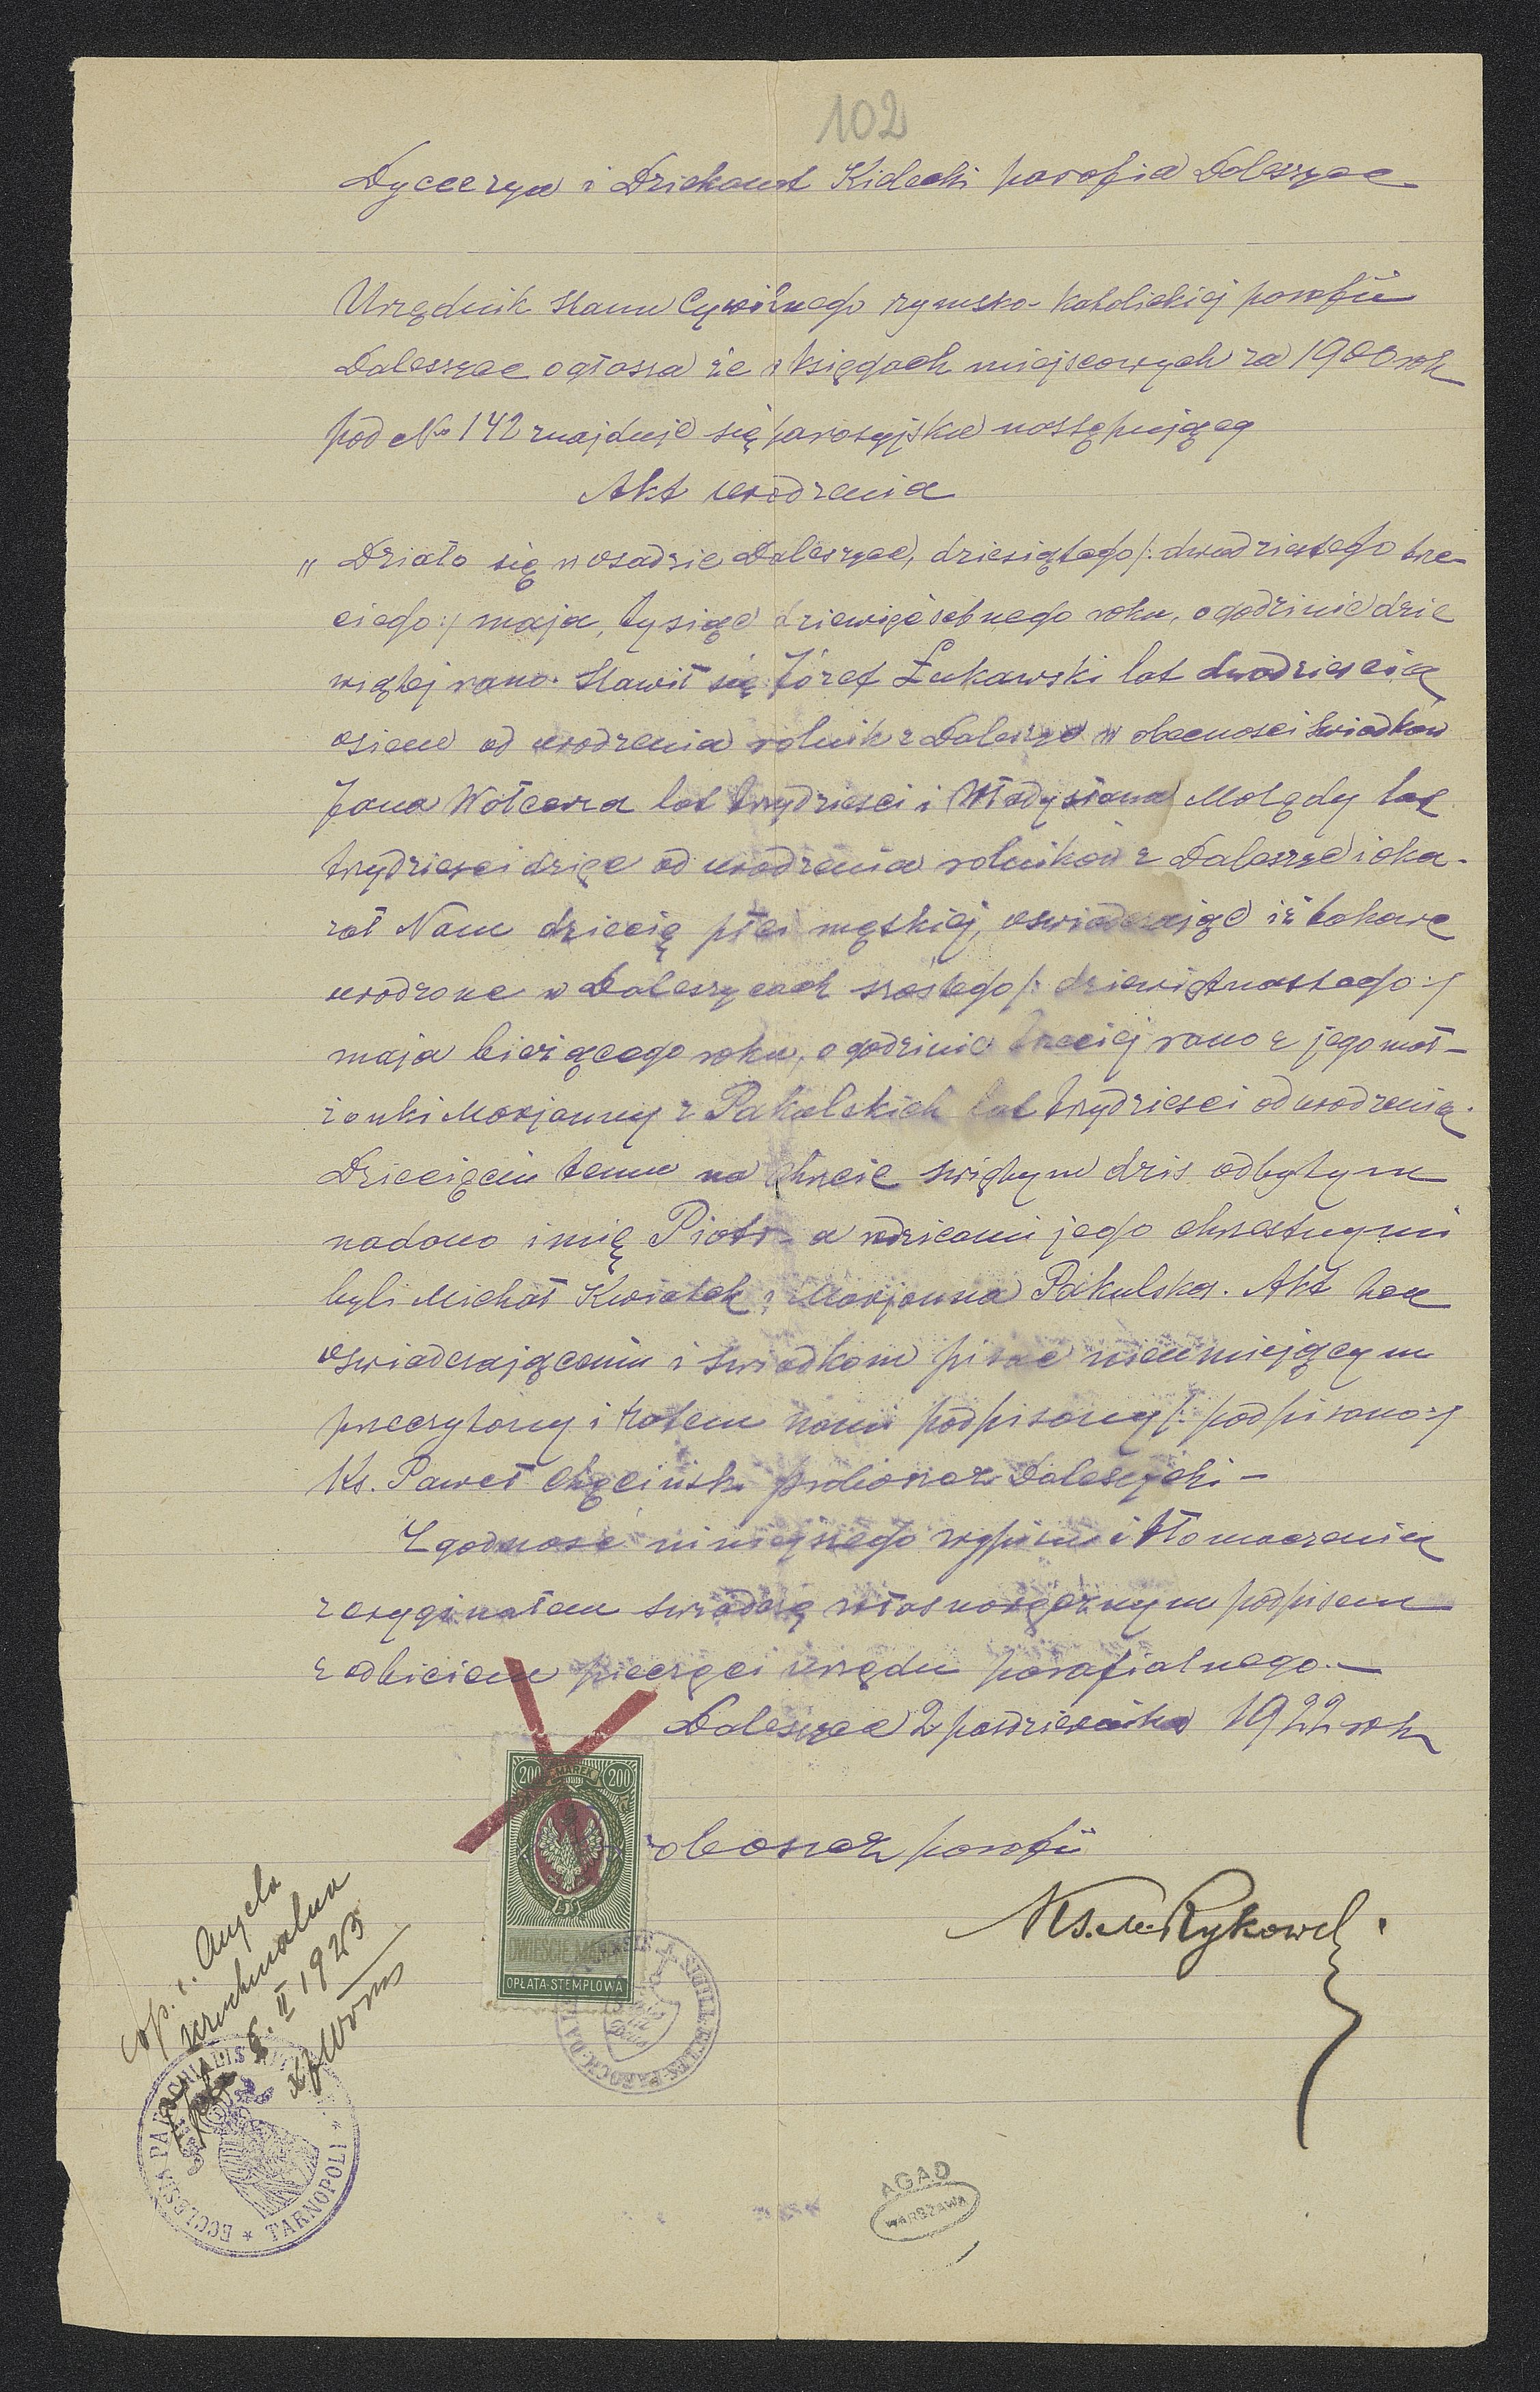 102
Dyecezya i Dziekanat Kielecki parafia Daleszyce
Urzędnik Stanu Cywilnego rzymsko-katolickiej parafii
Daleszyce ogłasza że w księgach miejscowych za 1900 rok
pod No 142 znajduje się parosyjsku następujący
Akt urodzenia
„Działo się w osadzie Daleszyce, dziesiątego /: dwudziestego trze-
ciego :/ maja, tysiąc dziewięćsetnego roku, o godzinie dzie
wiątej rano. Stawił się Józef Łukawski lat dwadzieścia
osiem od urodzenia rolnik z Daleszyc w obecności świadków
Jana Wołcerza lat trzydzieści i Władysława Molędy lat
trzydzieści dzięc od urodzenia rolników z Daleszyc i oka-
zał Nam dziecię płci męskiej, oświadczając iż takowe
urodzone w Daleszycach szóstego /: dziewiętnastego :/
maja bieżącego roku, o godzinie trzeciej rano z jego mał-
żonki Marjanny z Pakulskich lat trzydzieści od urodzenia.
Dziecięciu temu na chrzcie świętym dziś odbytym
nadano imię Piotr a rodzicami jego chrzestnymi
byli Michał Kwiatek i Marjanna Pakulska. Akt ten
oświadczającemu i świadkom pisać nieumiejącym
przeczytany i zatem nami podpisany /: podpisano :/
Ks. Paweł Chęciński proboszcz Daleszycki —
Zgodność niniejszego wypisu i tłomaczenia
z oryginałem świadczę własnoręcznym podpisem
z odbiciem pieczęci urzędu parafialnego. —
Daleszyce 2 październiku 1922 rok
200 MAREK 200
DWIEŚCIE MAREK
OPŁATA STEMPLOWA
roboszcz parafii
Ks. M. Rykowski
cop. c. Angela
6. II 1923
ECCLESIA PAROCHIALIS TARNOPOLI
SIGILL. ECCLES. PAROCH.
AGAD
WARSZAWA